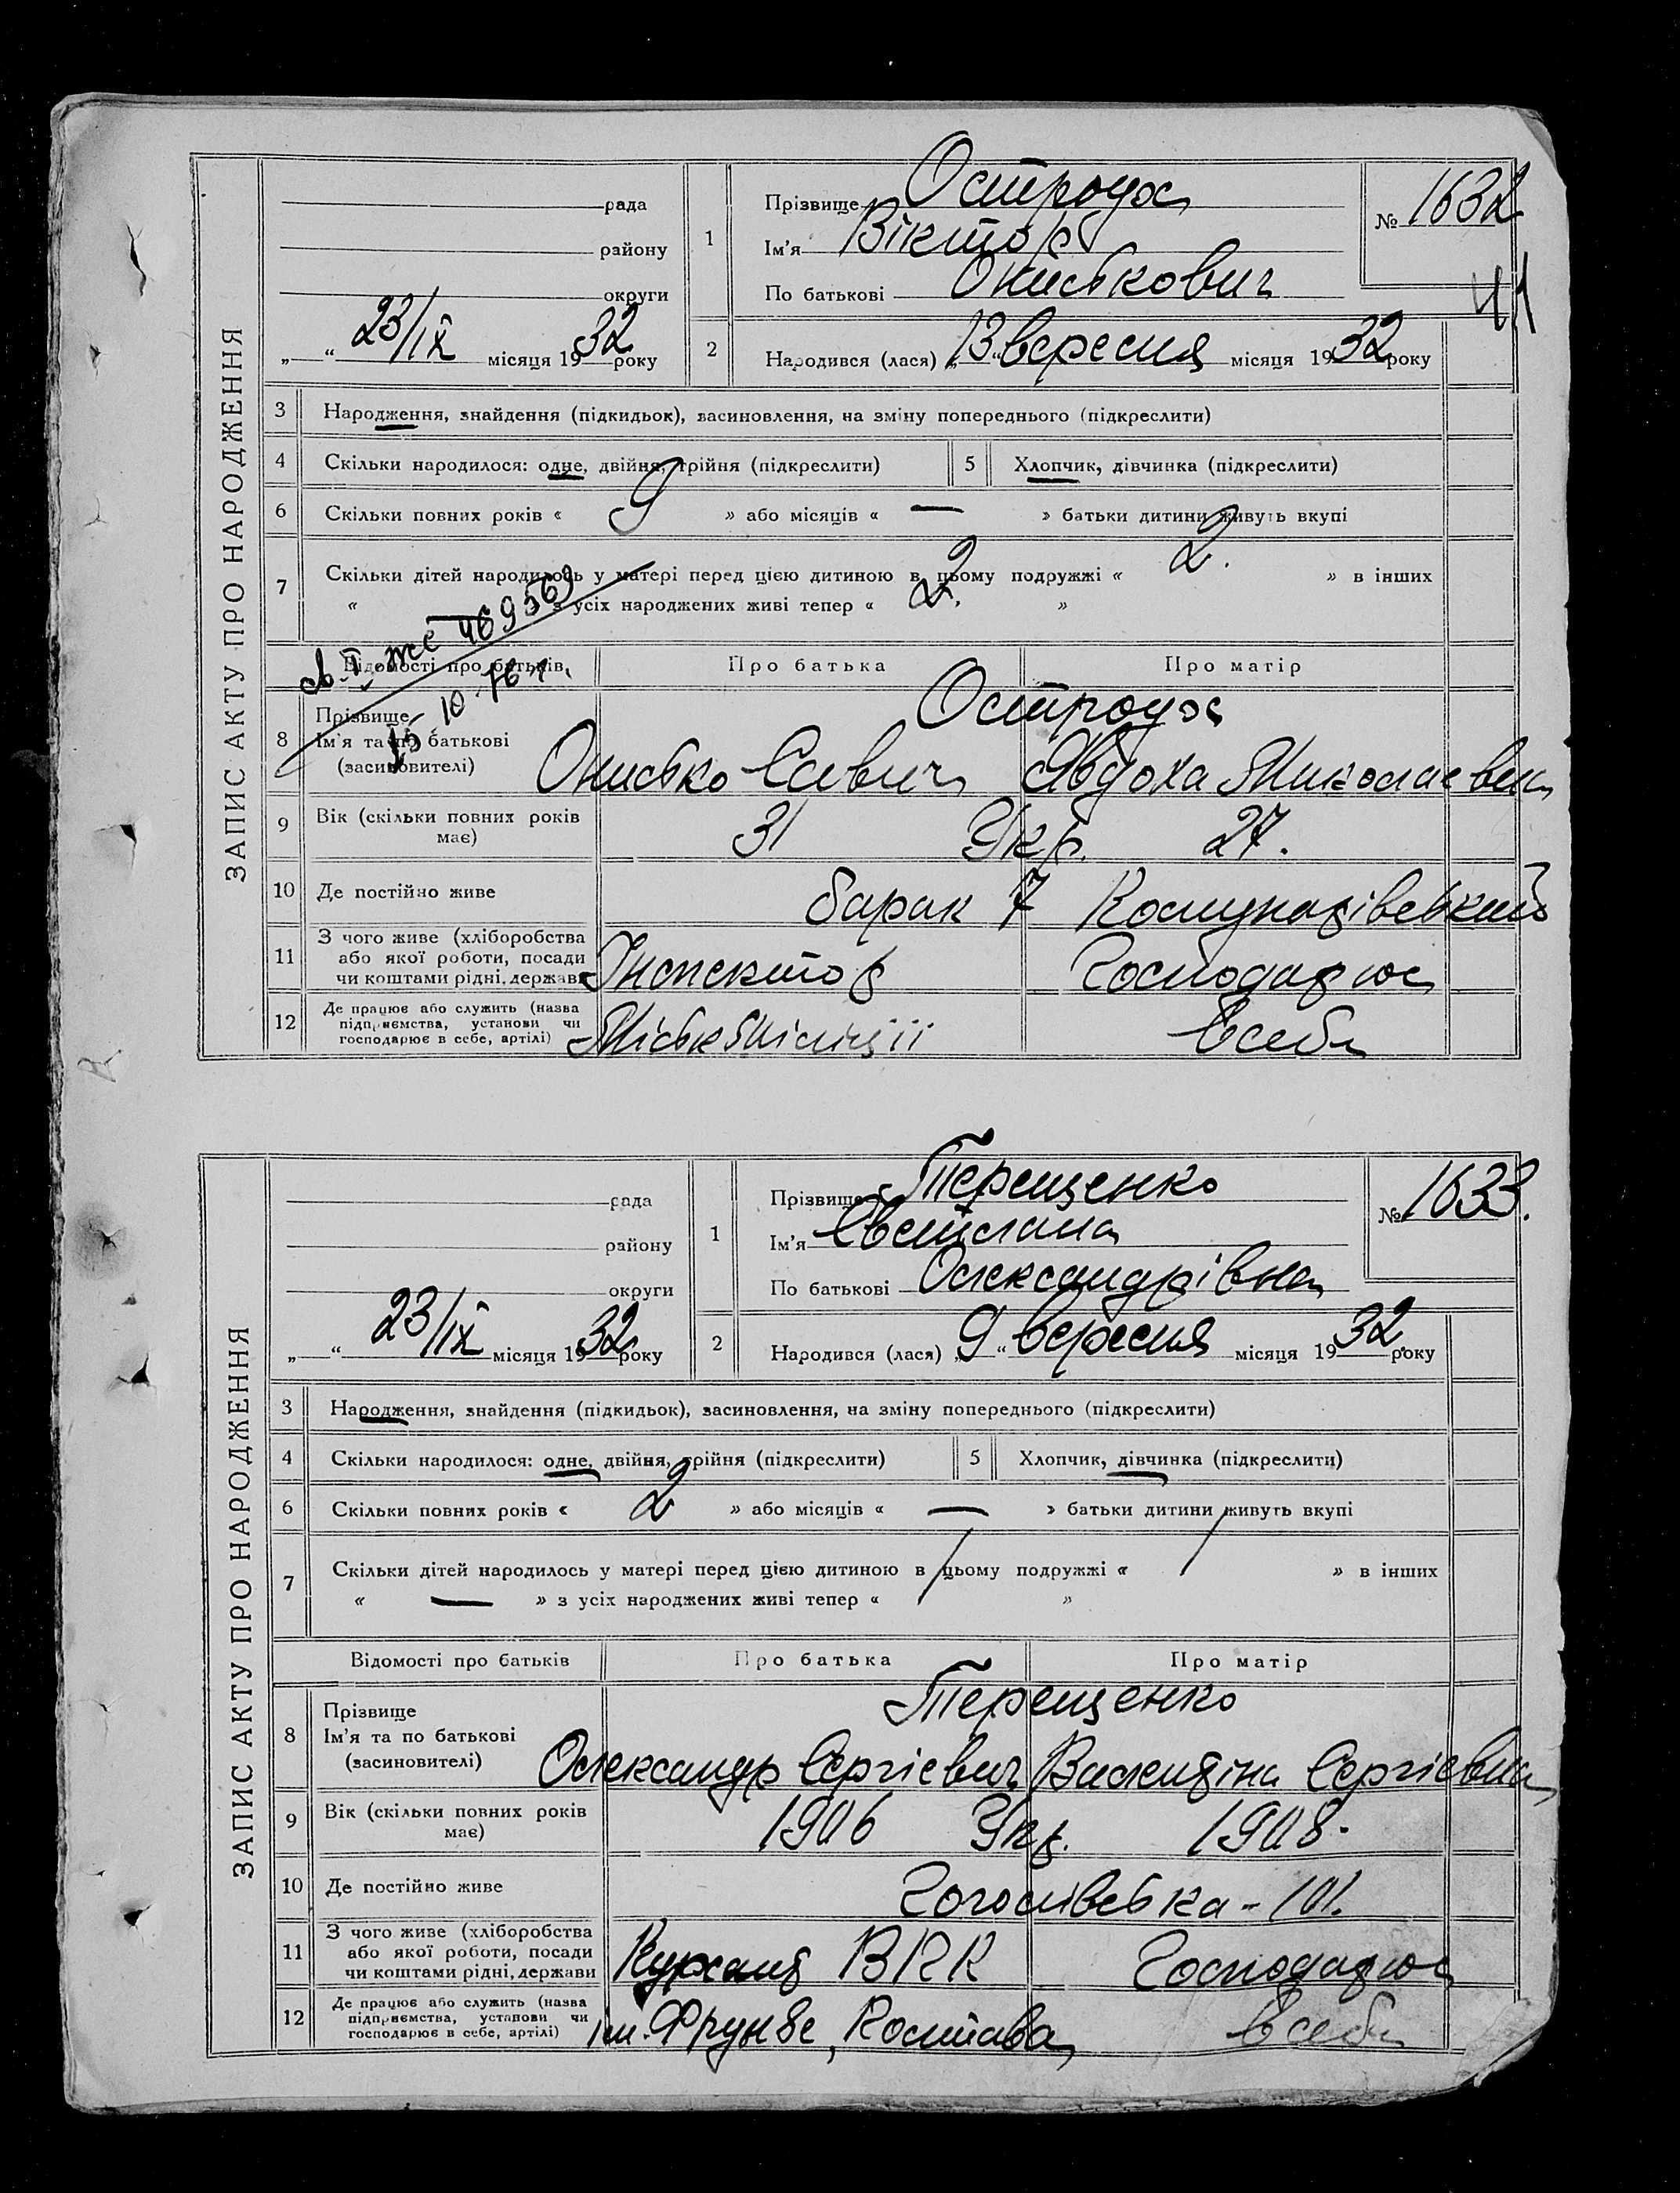 ЗАПИС АКТУ ПРО НАРОДЖЕННЯ
рада
району
округи
„ “ 23/IX місяця 1932 року
1
Прізвище Остроух
Ім'я Віктор
По батькові Ониськович
№ 1632
41
2
Народився (лася) „13“ вересня місяця 1932 року
3 Народження, знайдення (підкидьок), засиновлення, на зміну попереднього (підкреслити)
4 Скільки народилося: одне, двійня, трійня (підкреслити)
5 Хлопчик, дівчинка (підкреслити)
6 Скільки повних років « 9 » або місяців « — » батьки дитини живуть вкупі
7 Скільки дітей народилось у матері перед цією дитиною в цьому подружжі « 2. » в інших
« — » з усіх народжених живі тепер « 2. »
св. I-же 469569
15 10 76 г.
Відомості про батьків Про батька Про матір
8 Прізвище Остроух
Ім'я та по батькові
(засиновителі) Онисько Савич Явдоха Миколаевна
9 Вік (скільки повних років має) 31 Укр. 27.
10 Де постійно живе барак 7 Комунарівський
11 З чого живе (хліборобства
або якої роботи, посади
чи коштами рідні, держави Інспектор Господарює
12 Де працює або служить (назва
підприємства, установи чи
господарює в себе, артілі) МіськМіліції В себе
ЗАПИС АКТУ ПРО НАРОДЖЕННЯ
рада
району
округи
„ “ 23/IX місяця 1932 року
1
Прізвище Терещенко
Ім'я Светлана
По батькові Олександрівна
№ 1633.
2
Народився (лася) „9“ вересня місяця 1932 року
3 Народження, знайдення (підкидьок), засиновлення, на зміну попереднього (підкреслити)
4 Скільки народилося: одне, двійня, трійня (підкреслити)
5 Хлопчик, дівчинка (підкреслити)
6 Скільки повних років « 2 » або місяців « — » батьки дитини живуть вкупі
7 Скільки дітей народилось у матері перед цією дитиною в цьому подружжі « / » в інших
« — » з усіх народжених живі тепер « / »
Відомості про батьків Про батька Про матір
8 Прізвище Терещенко
Ім'я та по батькові
(засиновителі) Олександр Сергієвич Валентіна Сергієвна
9 Вік (скільки повних років має) 1906 Укр. 1908.
10 Де постійно живе Гоголівська - 101.
11 З чого живе (хліборобства
або якої роботи, посади
чи коштами рідні, держави Курсант ВКК Господарює
12 Де працює або служить (назва
підприємства, установи чи
господарює в себе, артілі) ім. Фрунзе, Полтава В себе